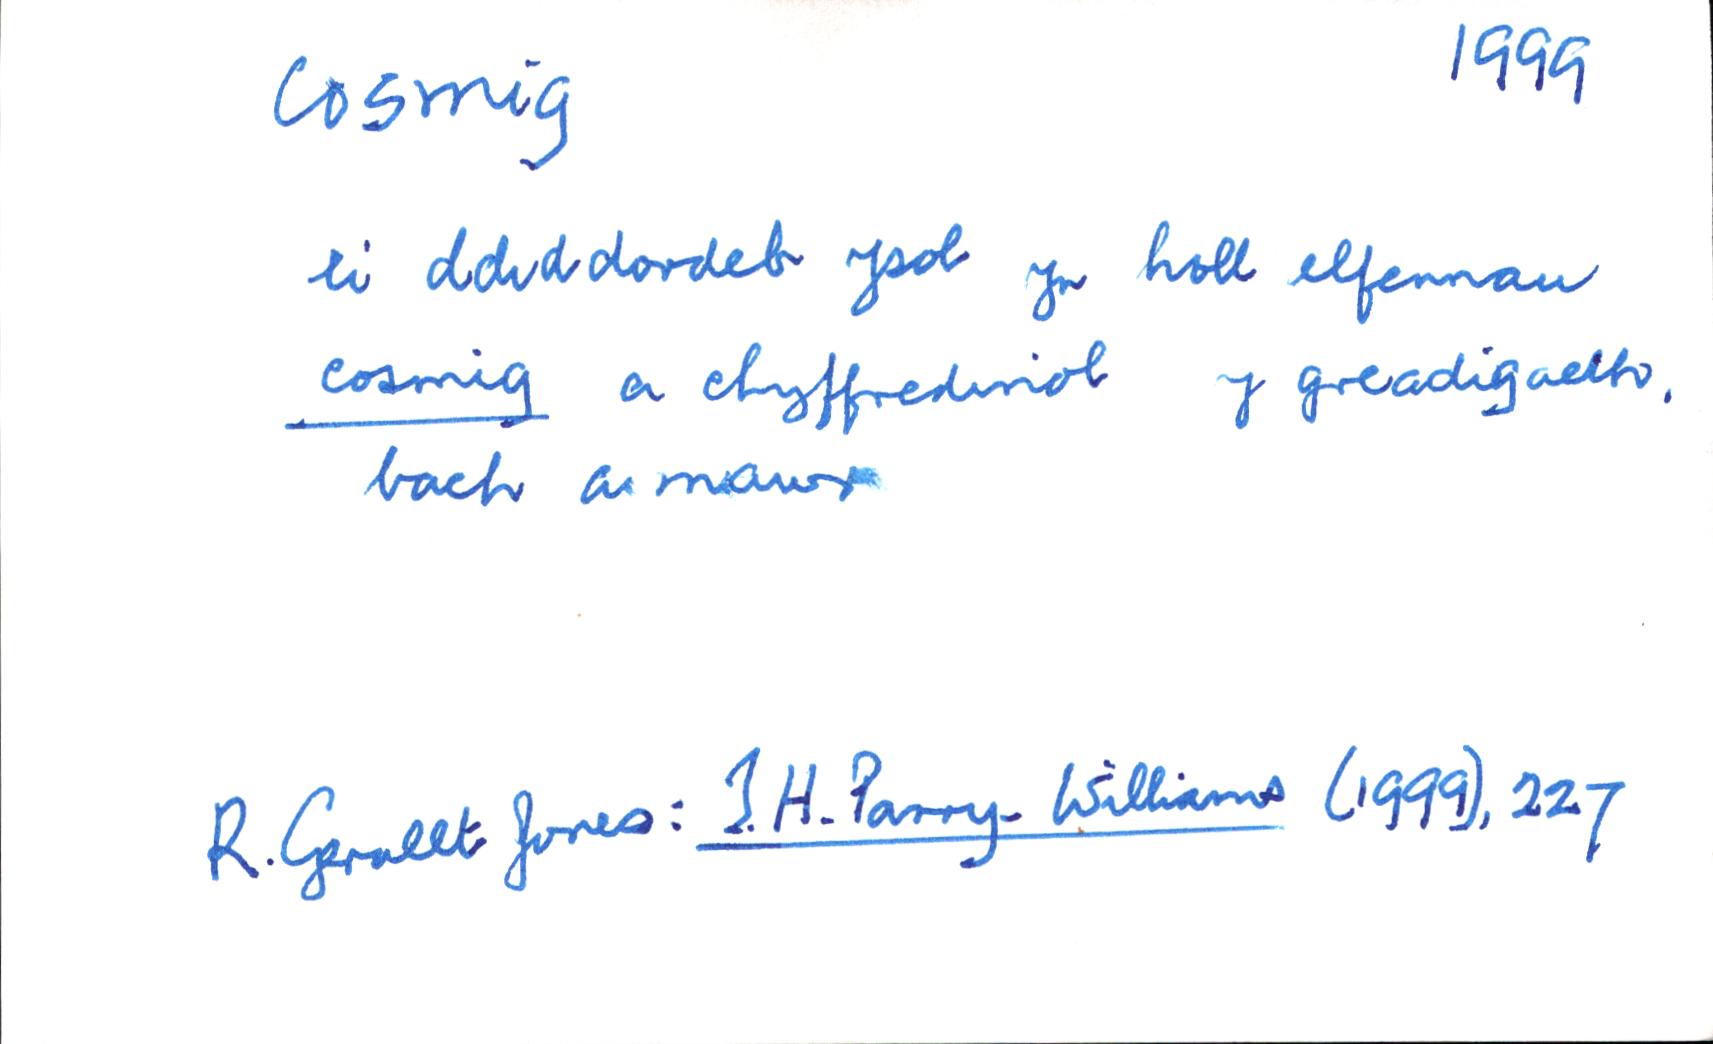 cosmig 1999
ei ddiddordeb ysol yn holl elfennau
cosmig a chyffredinol y greadigaeth,
bach a mawr
R. Gerallt Jones: T.H. Parry-Williams (1999), 227